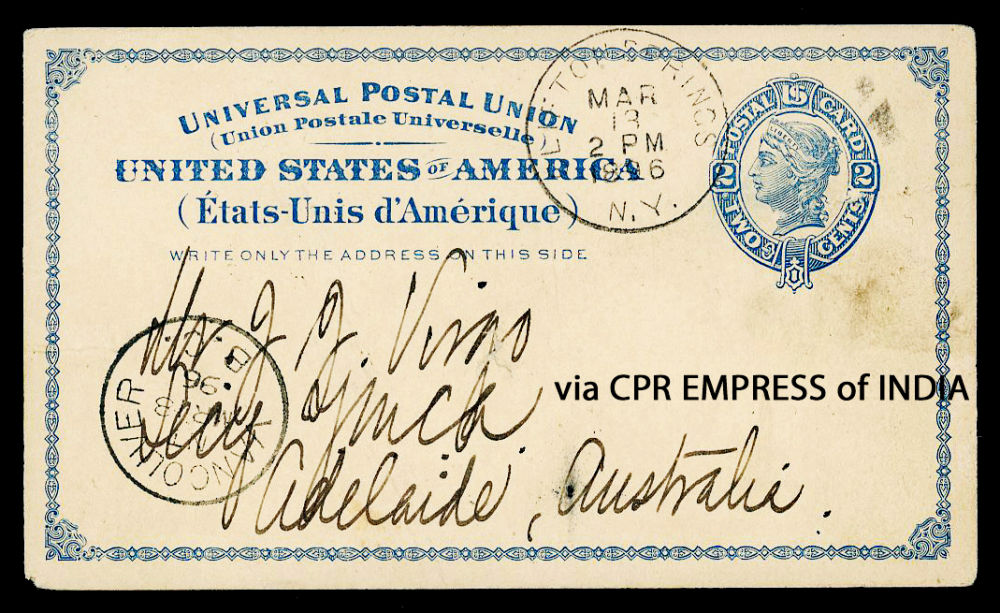 UNIVERSAL POSTAL UNION
(Union Postale Universelle)
UNITED STATES OF AMERICA
(États-Unis d'Amérique)
WRITE ONLY THE ADDRESS ON THIS SIDE
SPRINGS
MAR
13
2 PM
1896
N.Y.
U.S. POSTAL CARD
2 2
TWO CENTS
LIBERTY
Mr J. J. Virgo
Secy Ymca
Adelaide, Australia.
via CPR EMPRESS of INDIA
VANCOUVER
B.C.
96